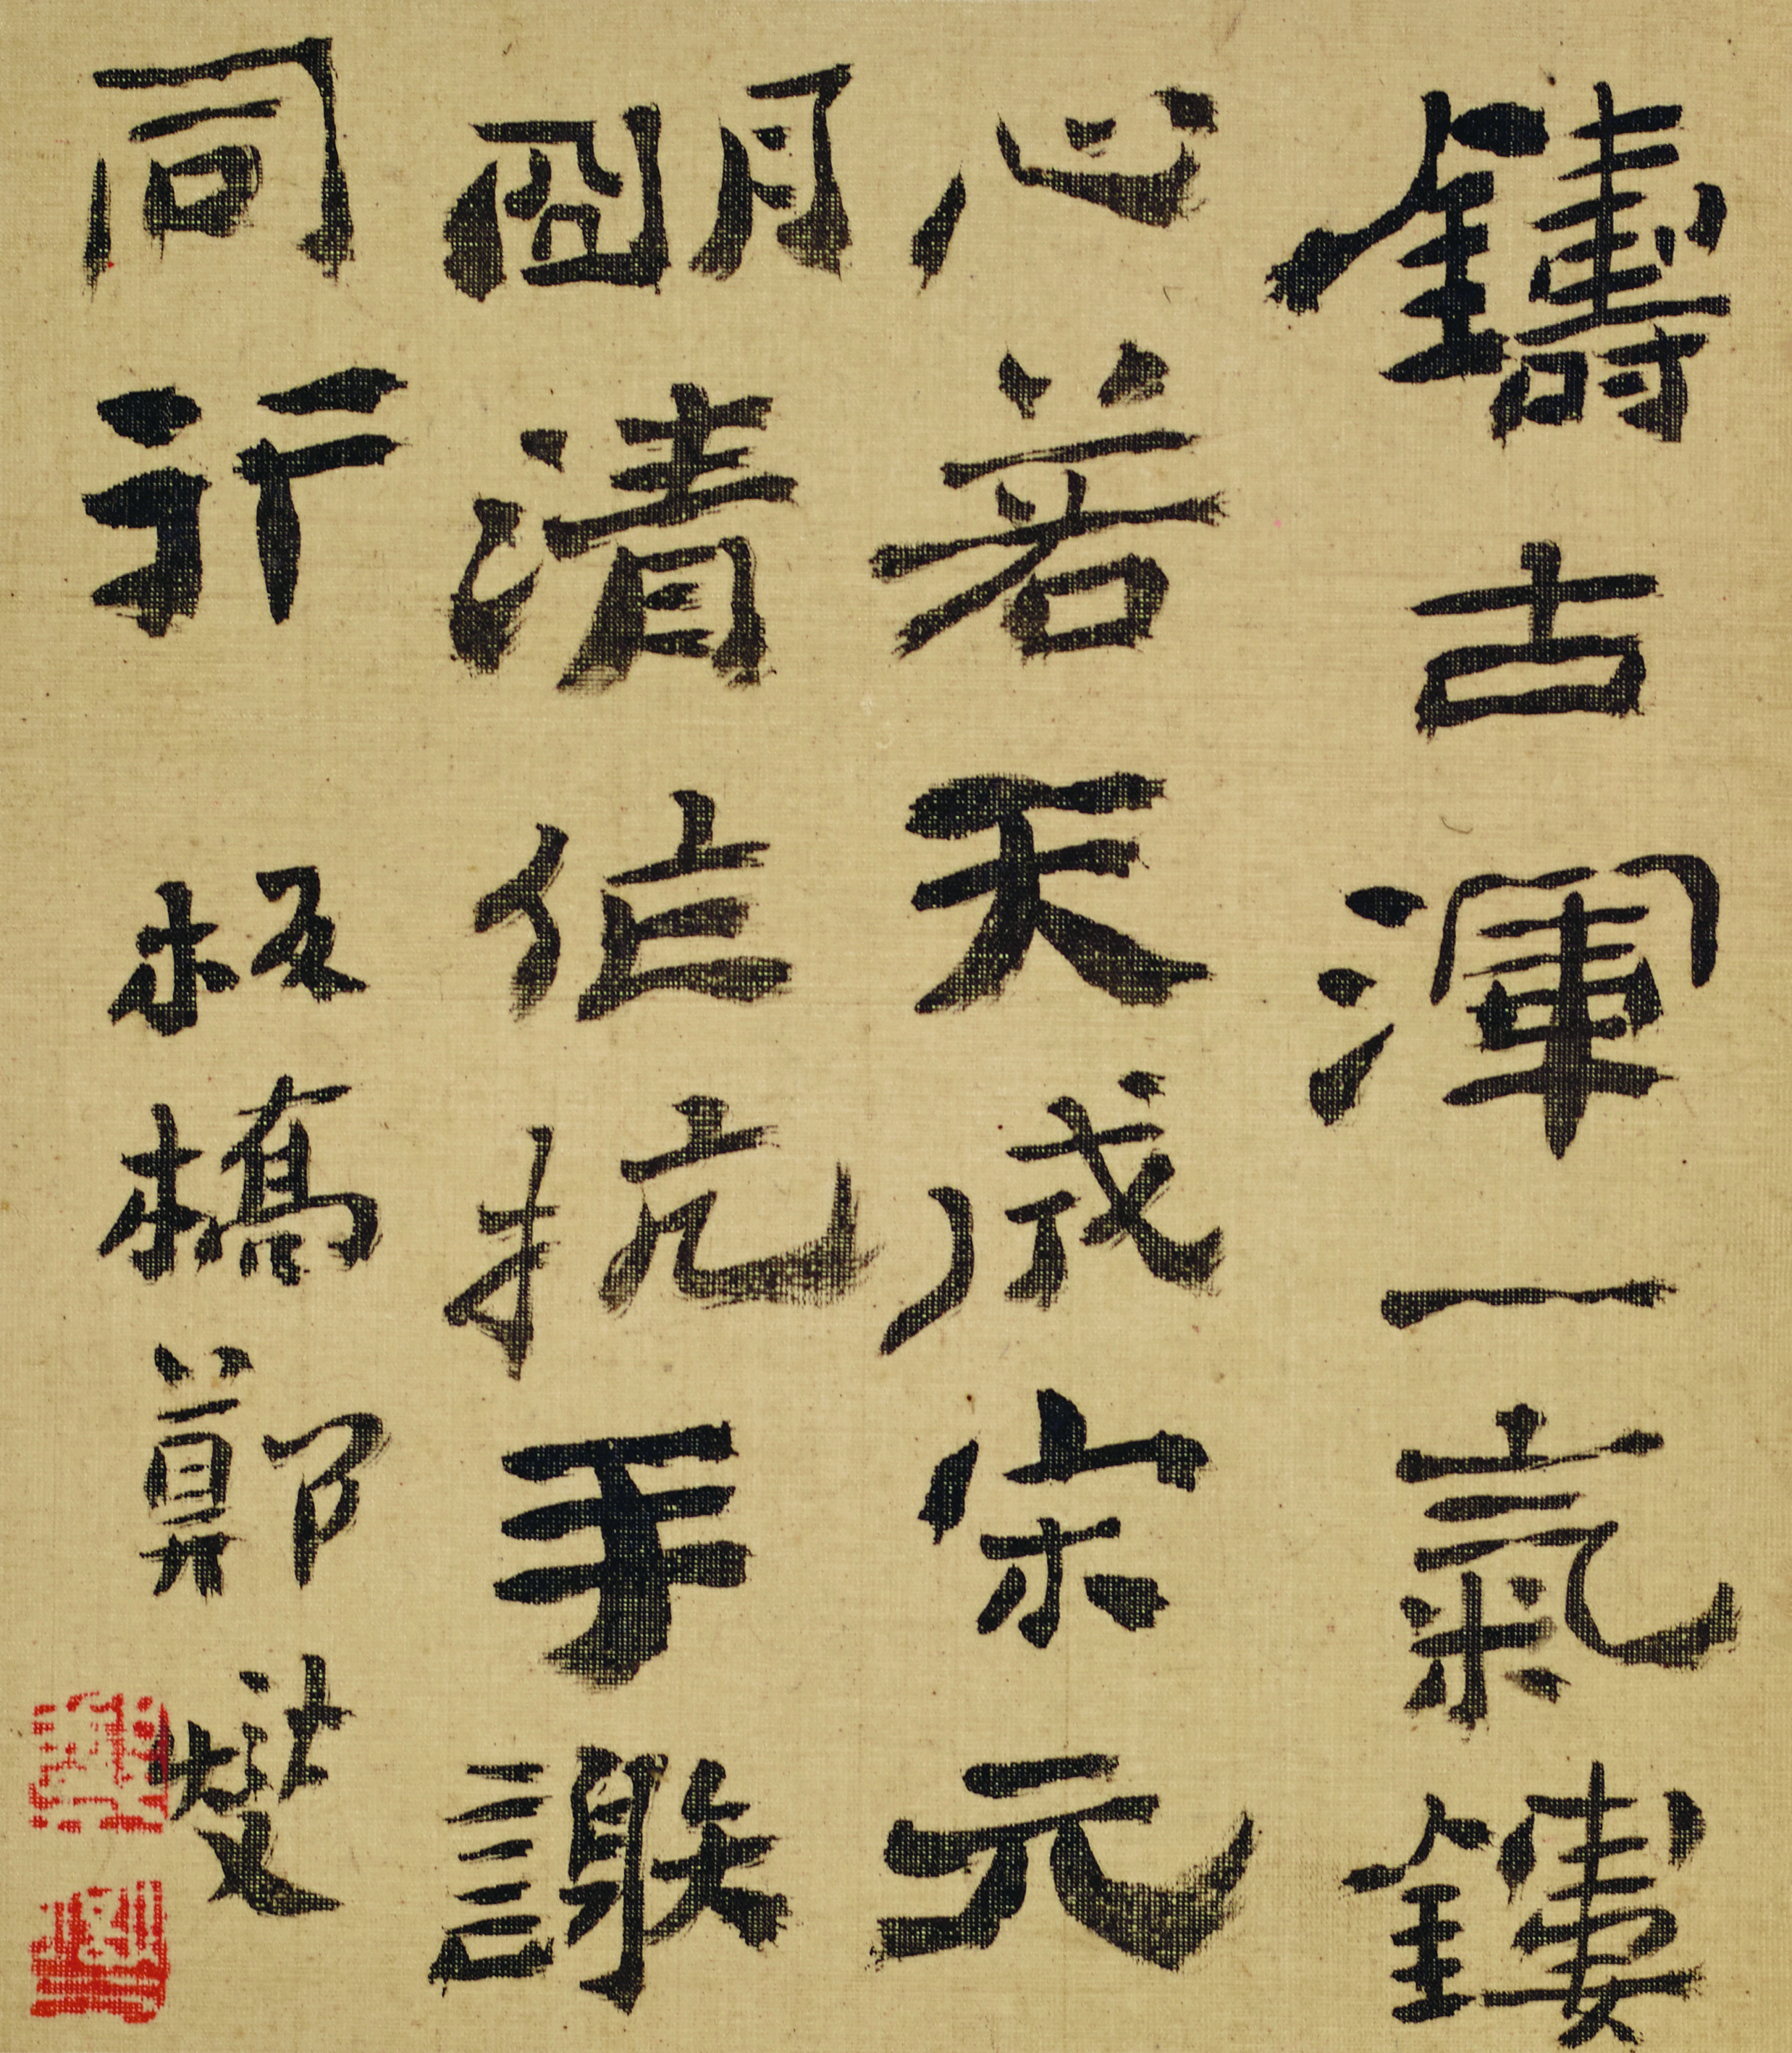 鑄古渾一氣鏤
心若天成宗元
朙清作抗手謝
同行
板橋鄭燮